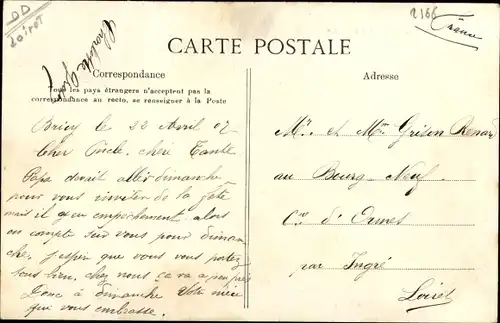 DD
Loiret
2166
France
CARTE POSTALE
Correspondance
Tous les pays étrangers n'acceptent pas la
correspondance au recto, se renseigner à la Poste
Adresse
Bricy le 22 Avril 07
Cher Oncle, chère Tante
Papa devait aller dimanche
pour vous inviter de la fête
mais il y eu empêchement alors
on compte sur vous pour diman
che, j'espère que vous vous portez
tous bien, chez nous ça va a peu près
Donc à dimanche Votre nièce
qui vous embrasse.
Mr et Mme Grison Renard
au Bourg-Neuf
Cne d'Ormes
par Ingré
Loiret